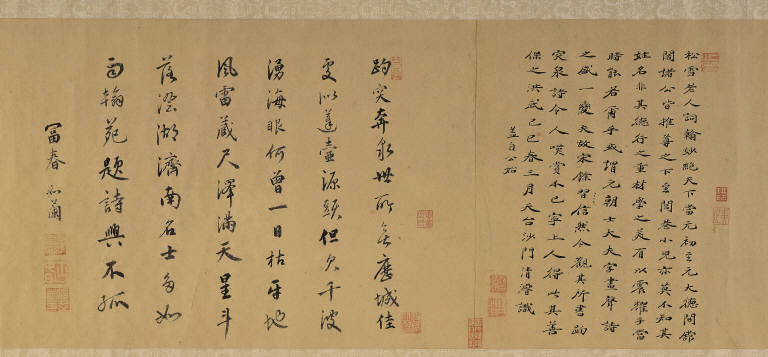 松雪老人詞翰妙絕天下當元初至元大德間館
閣諸公皆推尊之下至閭巷小兒亦莫不知其
姓名非其德行之重材學之美有以震耀于當
時詎若爾乎或謂元朝士大夫字畫聲詩
之盛一變夫故宋餘習信然今觀其所書趵
突泉詩令人嘆賞不已寧上人得此其善
保之洪武己巳春三月天台沙門清濬識
蓋自公始
趵突奔泉世所無歷城佳
處似蓬壺源頭但久千波
湧海眼何曾一日枯平地
風雷藏尺澤滿天星斗
落澄湖濟南名士多如
雨翰苑題詩興不孤
富春如蘭